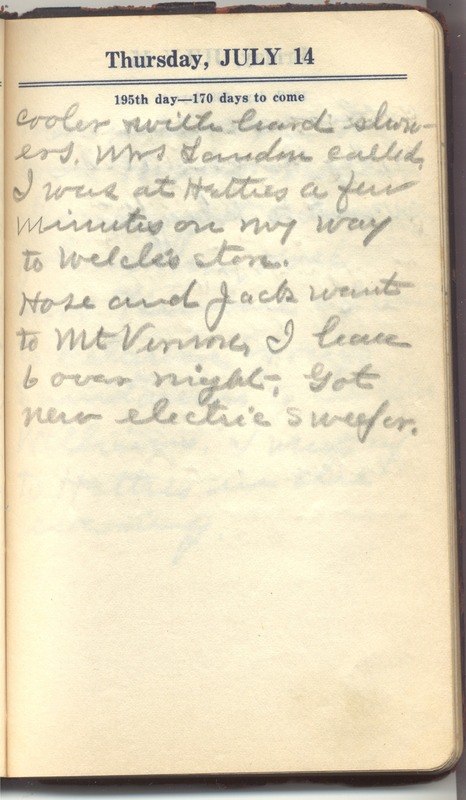 Thursday, JULY 14
195th day—170 days to come
cooler with hard show-
ers. Mrs Landon called,
I was at Hatties a few
minutes on my way
to Welch's store.
Hose and Jack went
to Mt Vernon, I have
6 over night, Got
new electric sweeper.